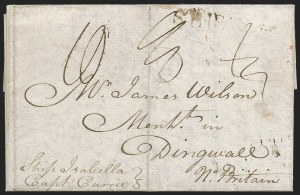 Mr. James Wilson
Mercht. in
Dingwall
No. Britain
Ship Isabella
Capt. Currie